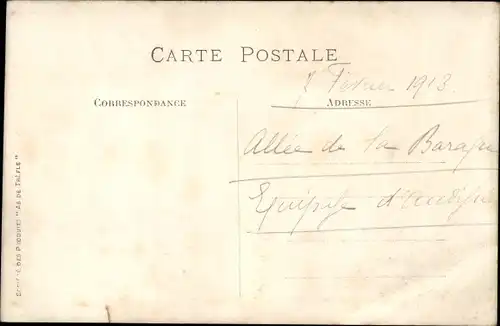 CARTE POSTALE
7 Février 1913.
CORRESPONDANCE
ADRESSE
Allée de la Baraque
Equipage d'Andigné
SOCIÉTÉ DES PRODUITS "AS DE TRÈFLE"